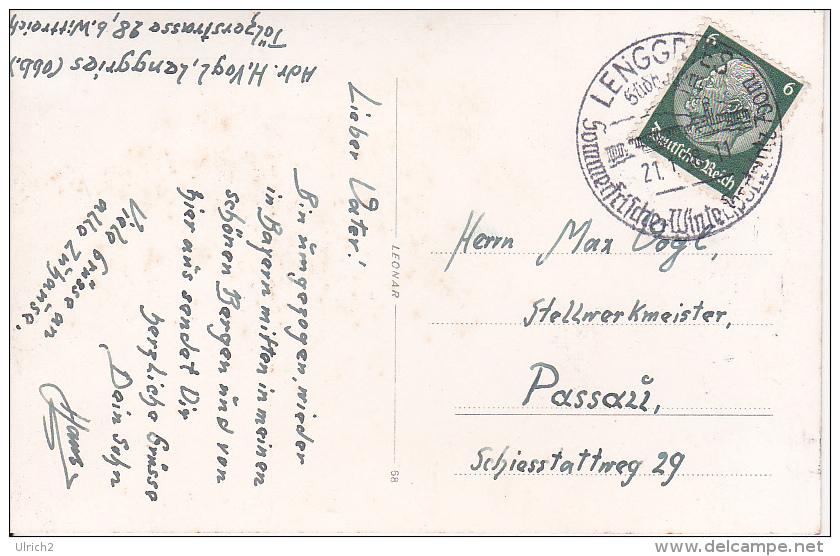 Adr. H. Vogl, Lenggries (Obb.)
Tölzerstrasse 28, b. Wittreich
Lieber Vater!
Bin umgezogen, wieder
in Bayern mitten in meinen
schönen Bergen und von
hier aus sendet Dir
herzliche Grüsse
Dein Sohn
Hans
Viele Grüsse an
alle zuhause.
LEONAR
68
LENGGRIES
21.
Sommerfrische Wintersport
6
6
Deutsches Reich
Herrn Max Vogl,
Stellwerkmeister,
Passau,
Schiesstattweg 29
Ulrich2
www.delcampe.net